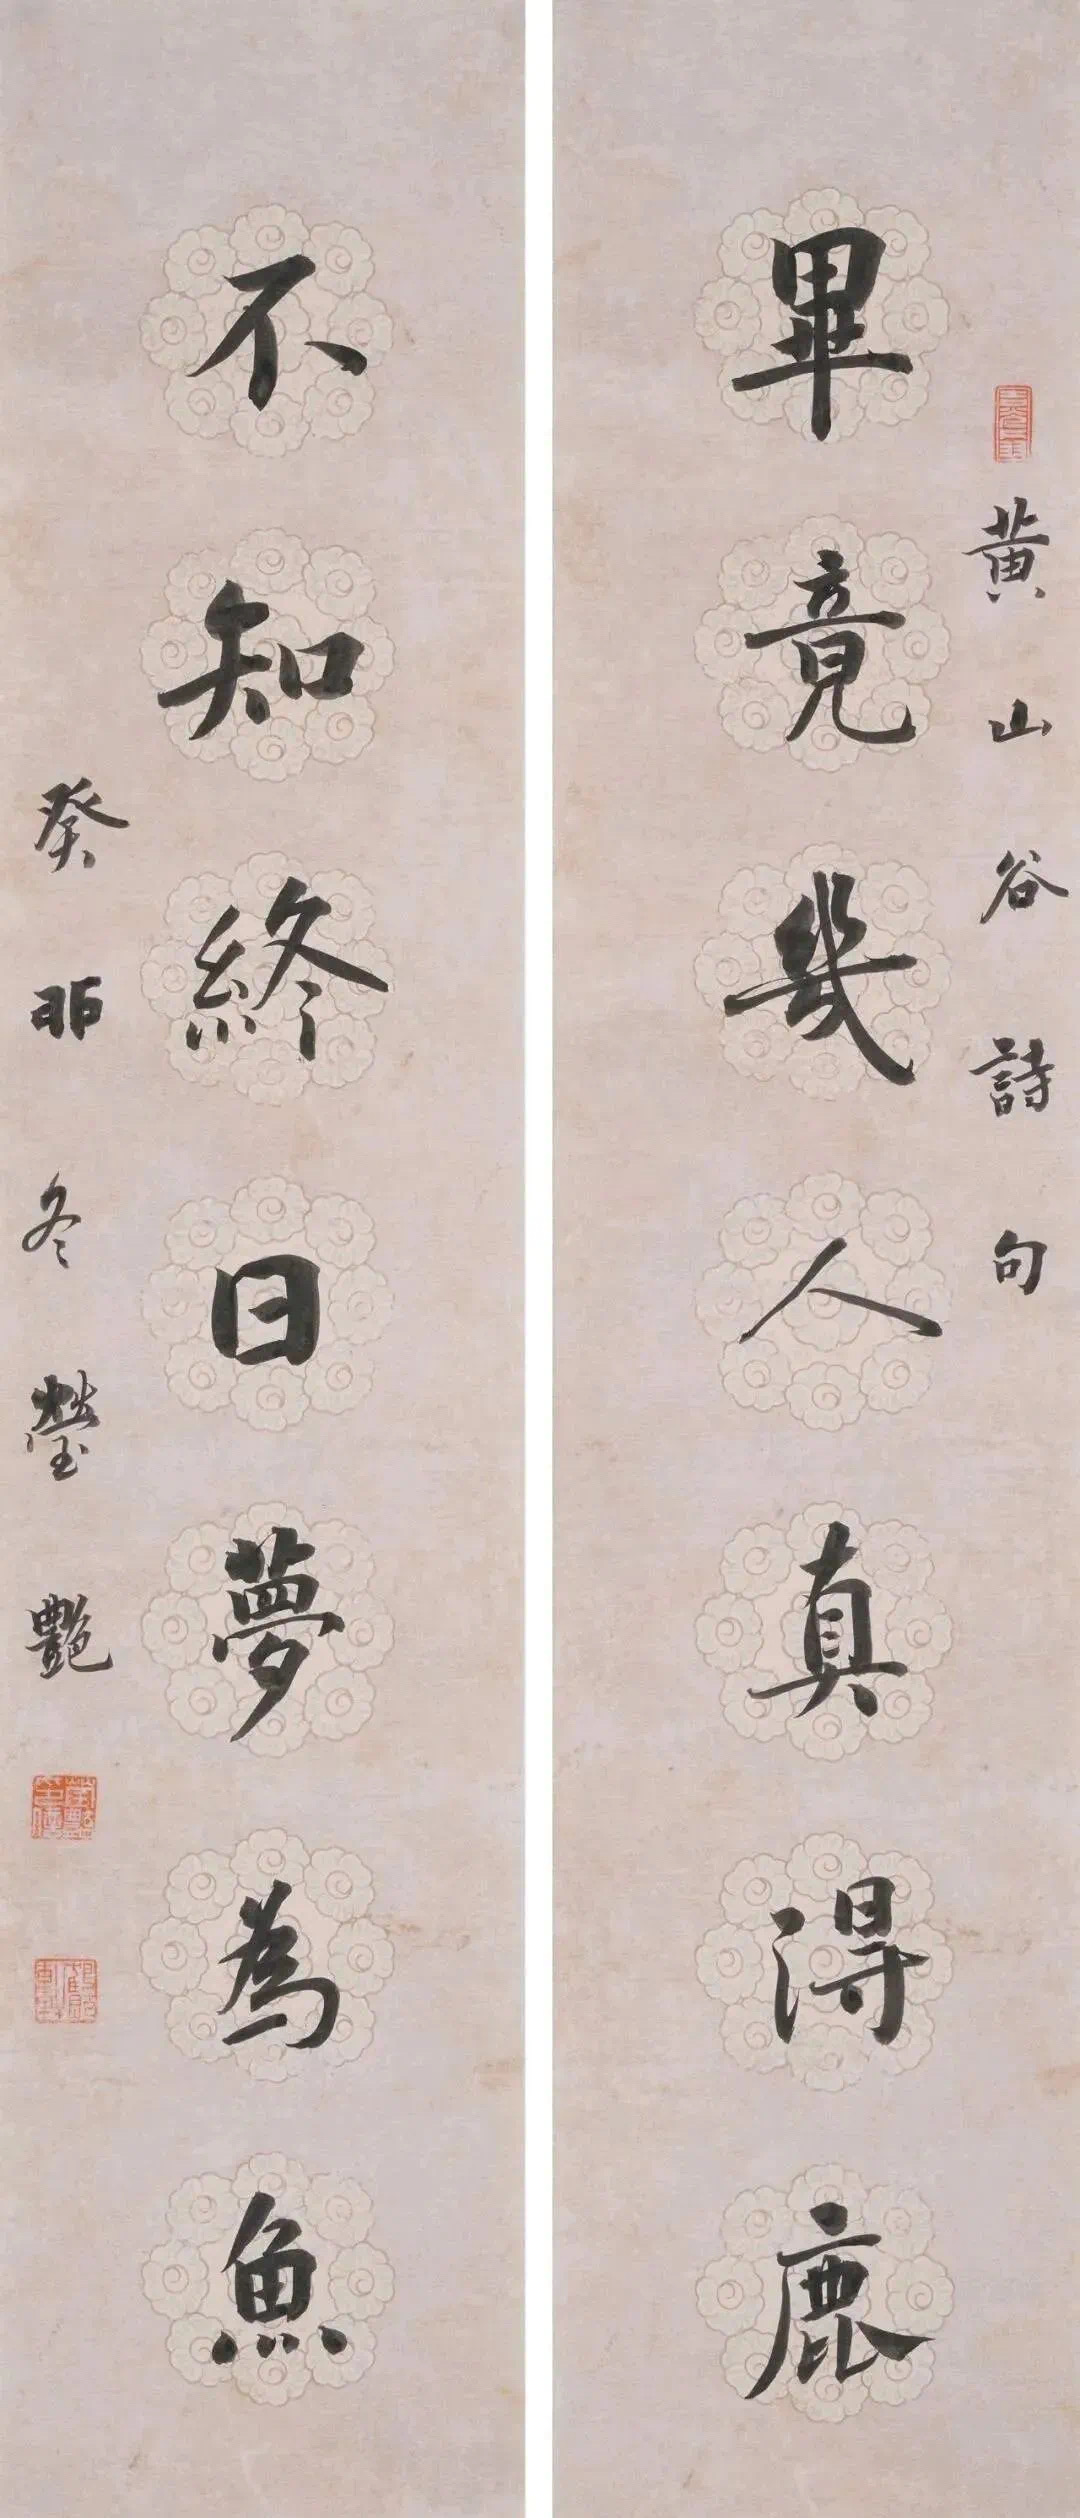 黃山谷詩句
畢竟幾人真得鹿
不知終日夢為魚
癸卯冬瑩艷